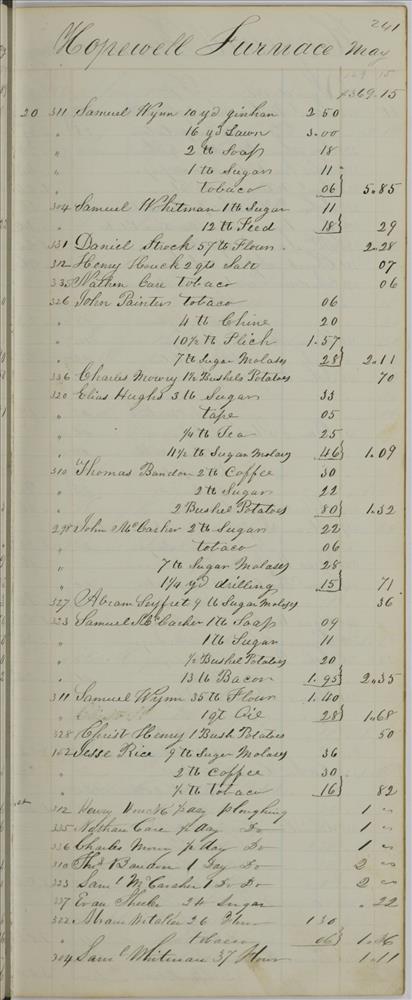 241
Hopewell Furnace May
$369.15
20 311 Samuel Wynn 10 yd ginhan 2 50
" 16 yd Lawn 3.00
" 2 lb Soap 18
" 1 lb Sugar 11
" tobaco 06} 5.85
304 Samuel Whitman 1 lb Sugar 11
" 12 lb Feed 18} 29
331 Daniel Strock 57 lb Flour 2.28
312 Henry Houck 2 qts Salt 07
335 Nathen Care tobaco 06
326 John Painter tobaco 06
" 4 lb Chine 20
" 10½ lb Flich 1.57
" 7 lb Sugar Molases 28} 2.11
336 Charles Mowry 1½ Bushels Potatoes 70
320 Elias Hughs 3 lb Sugar 33
" tape 05
" ¼ lb Tea 25
" 11½ lb Sugar Molasy 46} 1.09
310 Thomas Bandon 2 lb Coffee 30
" 2 lb Sugar 22
" 2 Bushel Potatoes 80} 1.32
298 John McCacher 2 lb Sugar 22
" tobaco 06
" 7 lb Sugar Molases 28
" 1¼ yd drilling 15} 71
327 Abram Seyfret 9 lb Sugar Molases 36
323 Samuel McCacher 1 lb Soap 09
" 1 lb Sugar 11
" ½ Bushel Potatoes 20
" 13 lb Bacon 1.95} 2.35
311 Samuel Wynn 35 lb Flour 1.40
" 1 qt Oil 28} 1.68
328 Christ Henry 1 Bush Potatoes 50
162 Jesse Rice 9 lb Suger Molases 36
" 2 lb Coffee 30
" ½ lb tobaco 16} 82
312 Henry Houck ½ day Ploughing 1 "
335 Nathan Care ½ day Do 1 "
336 Charles Mowry ½ day Do 1 "
310 Thos Bandon 1 Day Do 2 "
323 Saml McCacher 1 Do Do 2 "
Evan 2 lb Sugar .22
322 Abram 26 Flour 1 30
" tobacco 06} 1.36
304 Saml Whitman 37 Flour 1.11